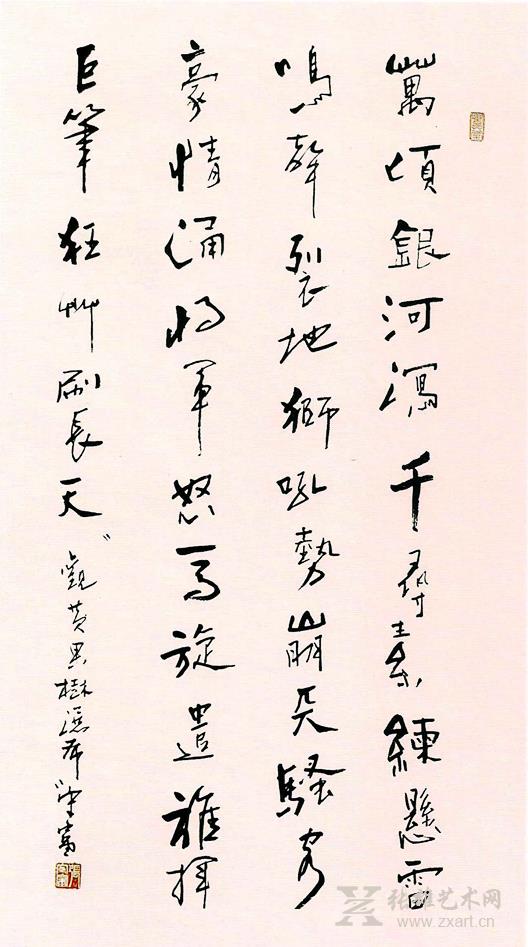 萬頃銀河瀉千尋素練懸雷
鳴聲裂地獅吼勢崩天騷客
豪情涌将軍怒馬旋遣誰揮
巨筆狂艸刷長天 觀黄果樹瀑布
张雄艺术网
www.zxart.cn